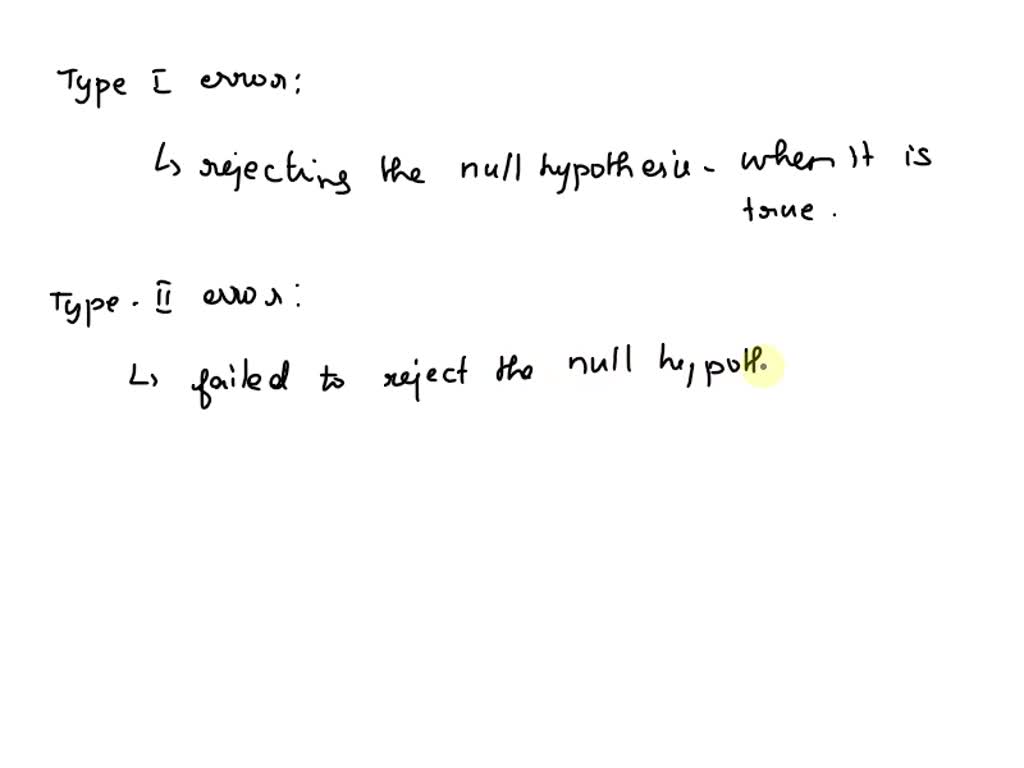 Type I error:
↳ rejecting the null hypothesis - when it is
true.
Type. II error:
↳ failed to reject the null hypoth